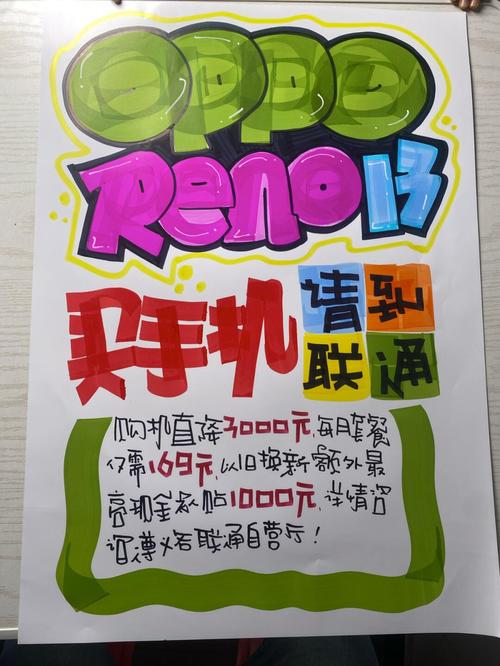 OPPO
Reno13
买手机
请到
联通
购机直降3000元,每月套餐
仅需169元,以旧换新额外最
高现金补贴1000元,详情咨
询遵义各联通自营厅!